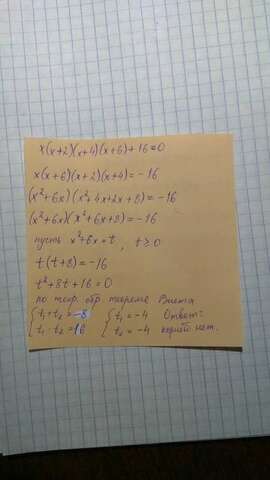 x(x+2)(x+4)(x+6)+16=0
x(x+6)(x+2)(x+4)=-16
(x²+6x)(x²+4x+2x+8)=-16
(x²+6x)(x²+6x+8)=-16
пусть x²+6x=t, t≥0
t(t+8)=-16
t²+8t+16=0
по теор. обр теореме Виета
{t₁+t₂=-8 {t₁=-4 Ответ:
{t₁·t₂=16 t₂=-4 корней нет.